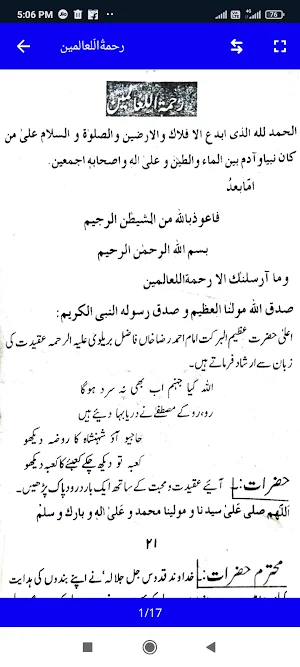 5:06 PM
76
رحمۃ اللعالمین
رحمۃ اللعالمین
الحمد لله الذى ابدع الا فلاك والارضين والصلوة و السلام علىٰ من
كان نبياو آدم بين الماء والطين و علىٰ الهٖ واصحابهٖ اجمعين.
امّابعدُ
فاعوذبالله من الشيطٰن الرجيم
بسم الله الرحمٰن الرحيم
وما آرسلنٰك الا رحمةاللعالمين
صدق الله مولٰنا العظيم و صدق رسوله النبى الكريم:
اعلیٰ حضرت عظیم البرکت امام احمد رضا خاں فاضل بریلوی علیہ الرحمہ عقیدت کی
زبان سے ارشاد فرماتے ہیں۔
اللہ کیا جہنم اب بھی نہ سرد ہوگا
رو رو کے مصطفیٰ نے دریا بہا دیئے ہیں
حاجیو آؤ شہنشاہ کا روضہ دیکھو
کعبہ تو دیکھ چکے کعبے کا کعبہ دیکھو
حضرات:۔ آیئے عقیدت و محبت کے ساتھ ایک بار درود پاک پڑھیں۔
اللّٰهم صلى علىٰ سيدنا و مولينا محمد و علىٰ الهٖ و بارك و سلم
۲۱
محترم حضرات:۔ خداوند قدوس جل جلالہ نے اپنے بندوں کی ہدایت
1/17